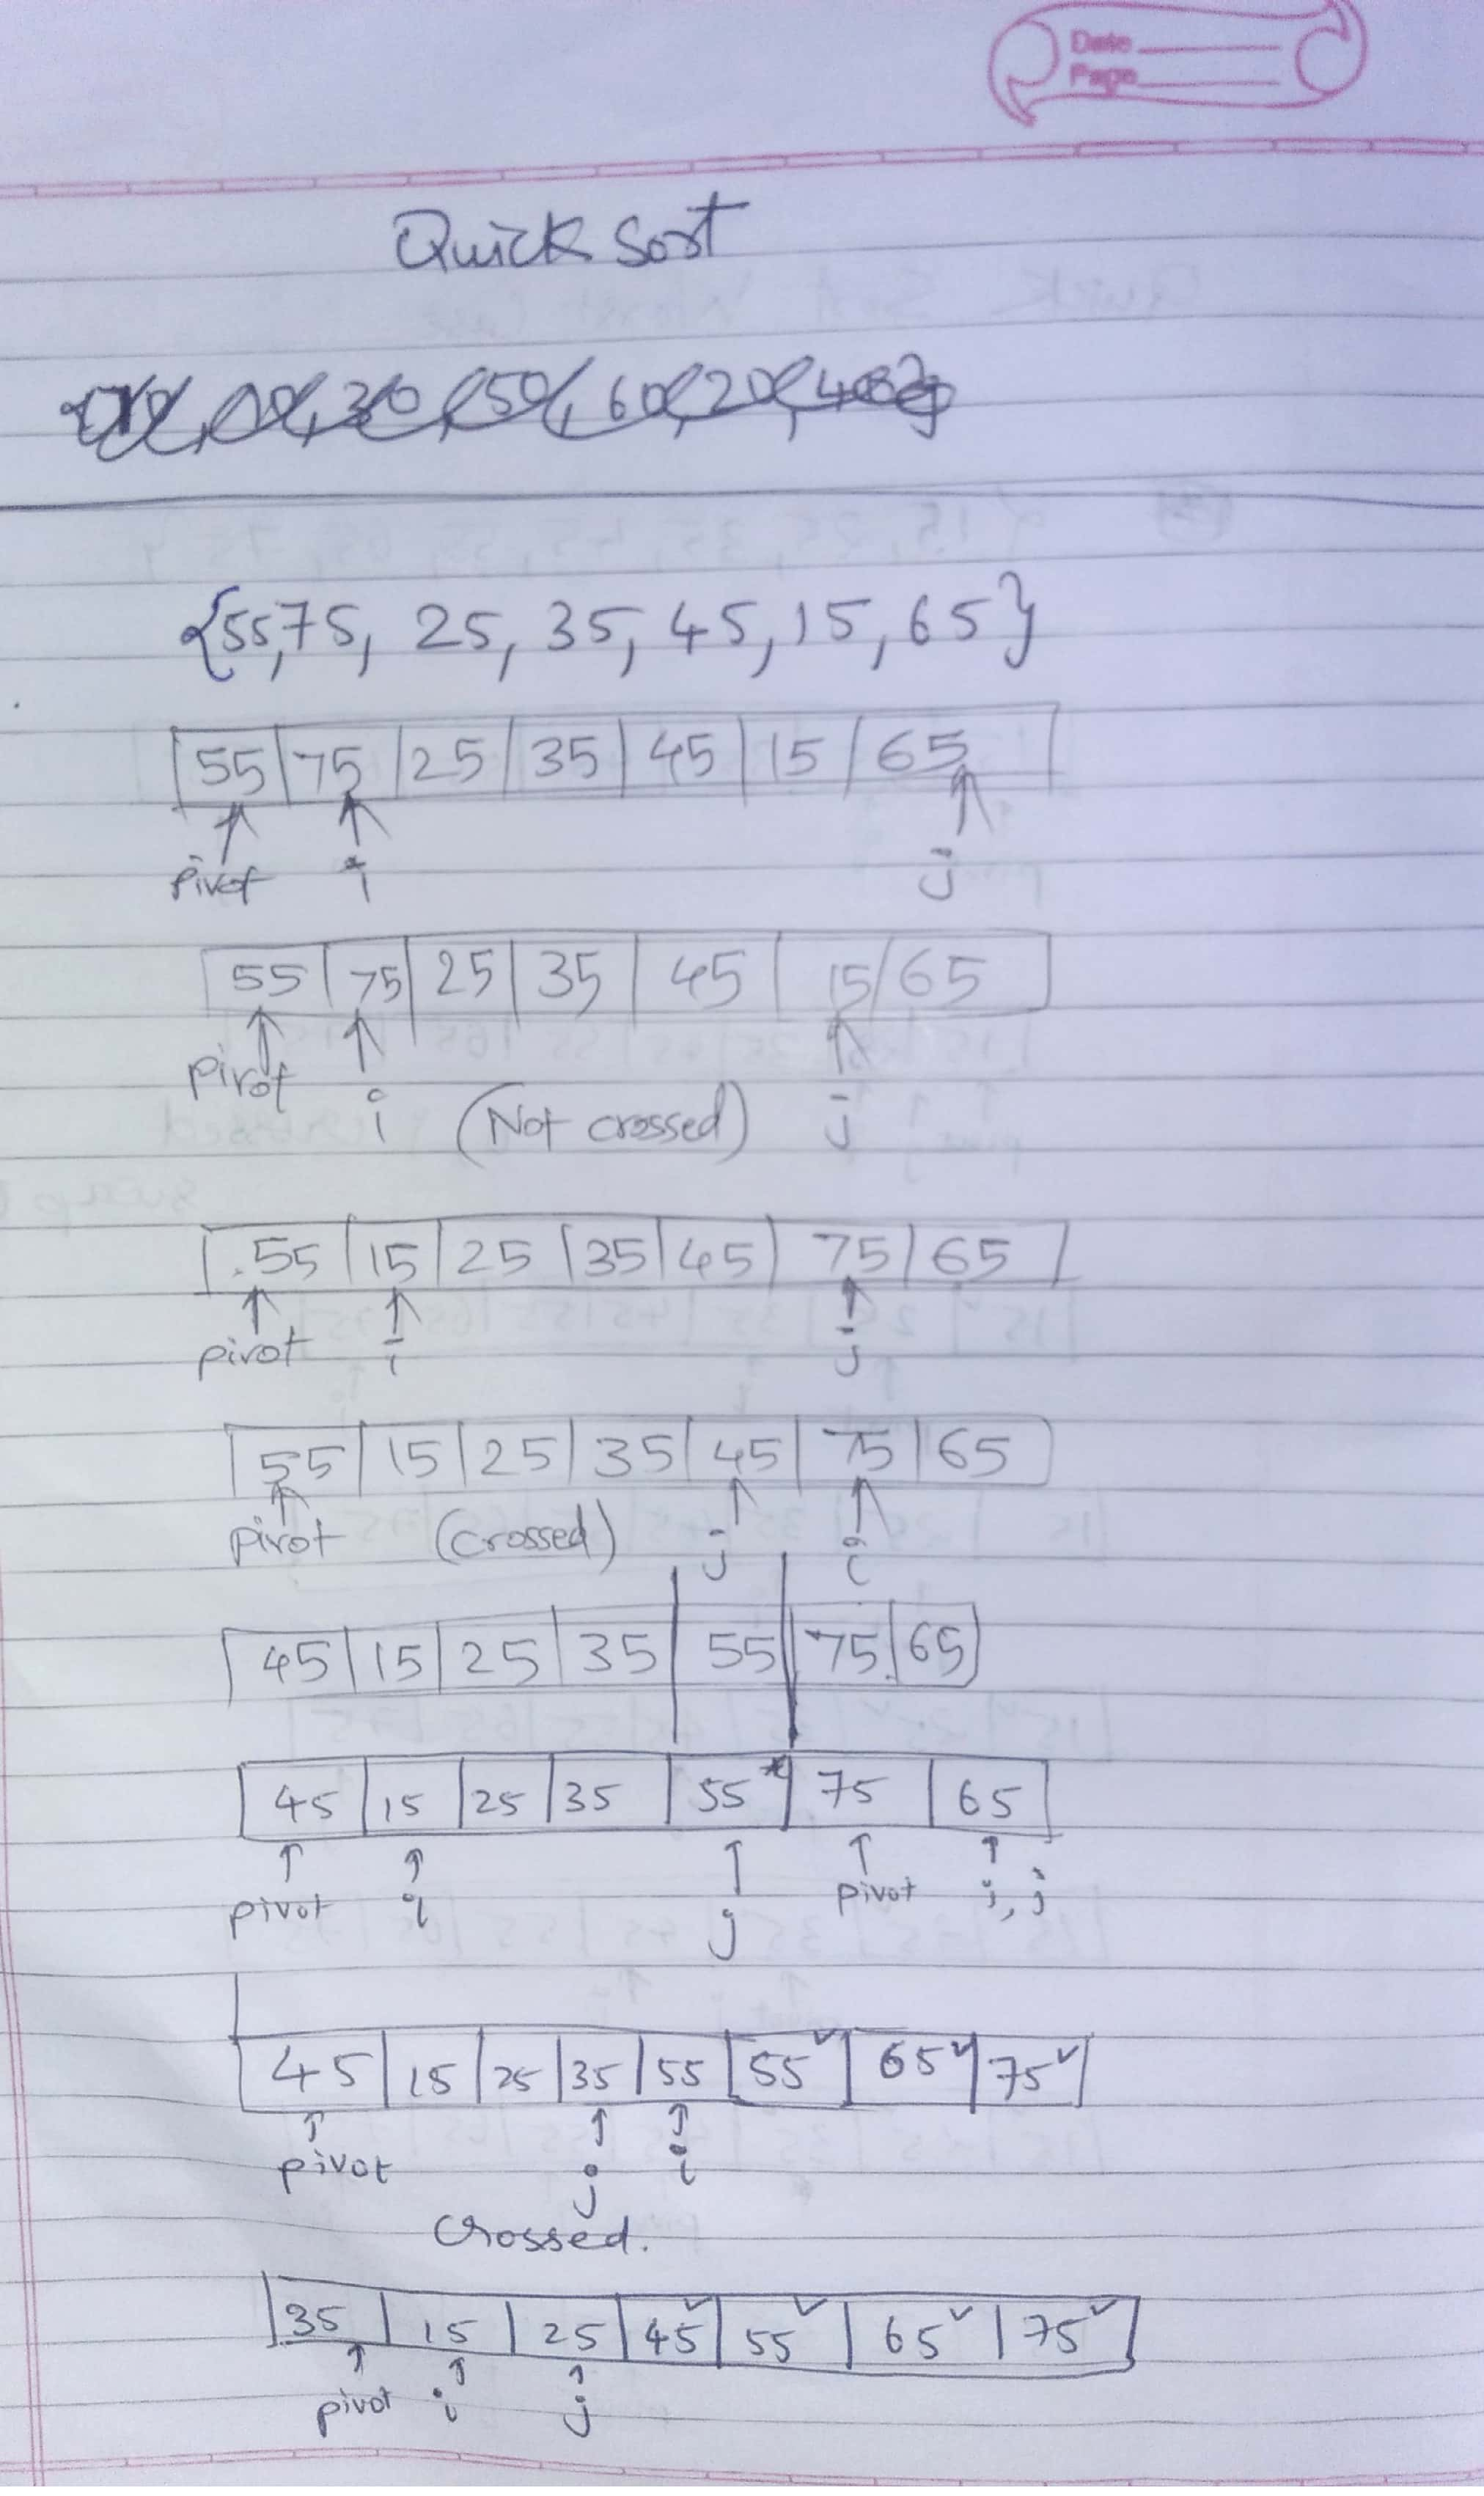 Date
Page
Quick Sort
{55,75, 25, 35, 45, 15, 65}
55 75 25 35 45 15 65
pivot i j
55 75 25 35 45 15 65
pivot i (Not crossed) j
55 15 25 35 45 75 65
pivot i j
55 15 25 35 45 75 65
pivot (crossed) j i
45 15 25 35 55 75 65
45 15 25 35 55 75 65
pivot i j pivot i, j
45 15 25 35 55 55✓ 65✓ 75✓
pivot j i
crossed.
35 15 25 45✓ 55✓ 65✓ 75✓
pivot i j